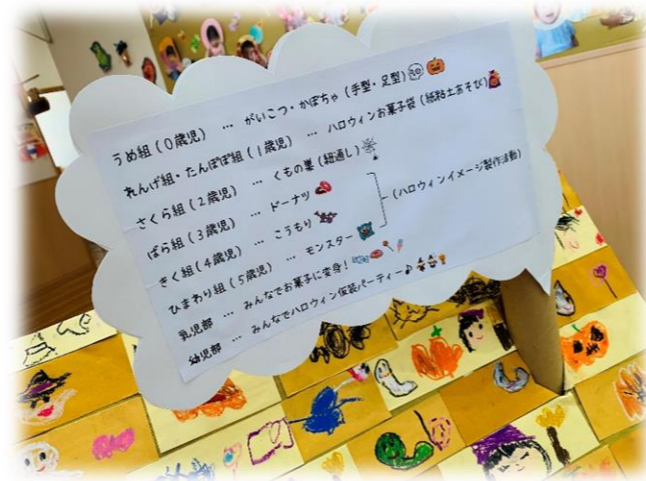 うめ組(0歳児) … がいこつ・かぼちゃ(手型・足型)
れんげ組・たんぽぽ組(1歳児) … ハロウィンお菓子袋(紙粘土あそび)
さくら組(2歳児) … くもの巣(紐通し)
ばら組(3歳児) … ドーナツ
きく組(4歳児) … こうもり
ひまわり組(5歳児) … モンスター
(ハロウィンイメージ製作活動)
乳児部 … みんなでお菓子に変身!
幼児部 … みんなでハロウィン仮装パーティー♪